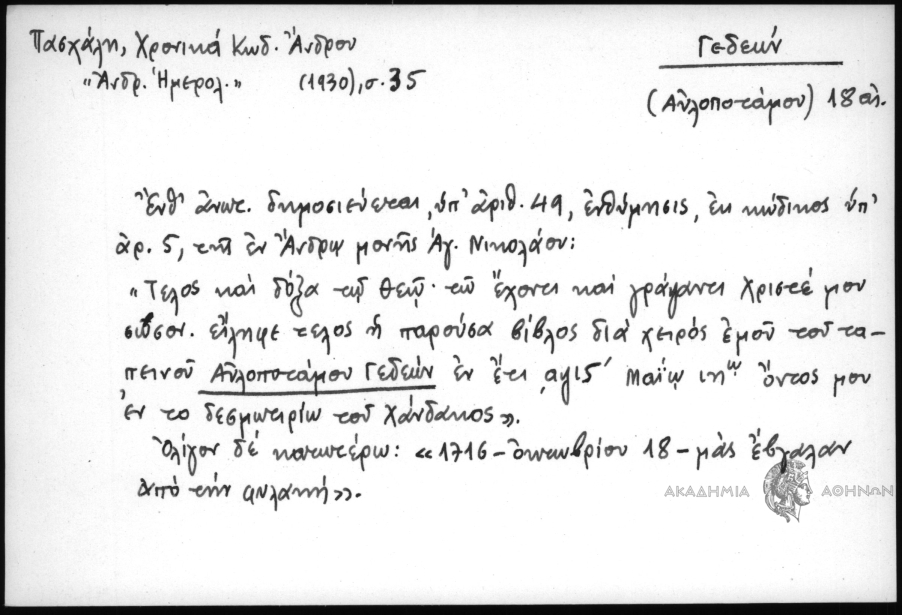 Πασχάλη, Χρονικά Κωδ. Ἄνδρου
"Ἀνδρ. Ἡμερολ." (1930), σ. 35
Γεδεών
(Αὐλοποτάμου) 18 αἰ.
Ἔνθ' ἀνωτ. δημοσιεύεται, ὑπ' ἀριθ. 49, ἐνθύμησις, ἐκ κώδικος ὑπ'
ἀρ. 5, τῆς ἐν Ἄνδρῳ μονῆς Ἁγ. Νικολάου:
"Τελος καὶ δόξα τῷ θεῷ· τῶ ἔχοντι καὶ γράψαντι Χριστέ μου
σῶσον. εἴληφε τελος ἡ παρούσα βίβλος διὰ χειρός ἐμοῦ τοῦ τα-
πεινοῦ Αὐλοποτάμου Γεδεών ἐν ἔτι ͵αψιϚ' Μαΐῳ ιηῃ ὄντος μου
ἐν το δεσμωτιρίω τοῦ Χάνδακος».
Ὀλίγον δέ κατωτέρω: «1716 - ὀκτωβρίου 18 - μὰς ἐβγαλαν
ἀπὸ τὴν φυλακή».
ΑΚΑΔΗΜΙΑ ΑΘΗΝΩΝ